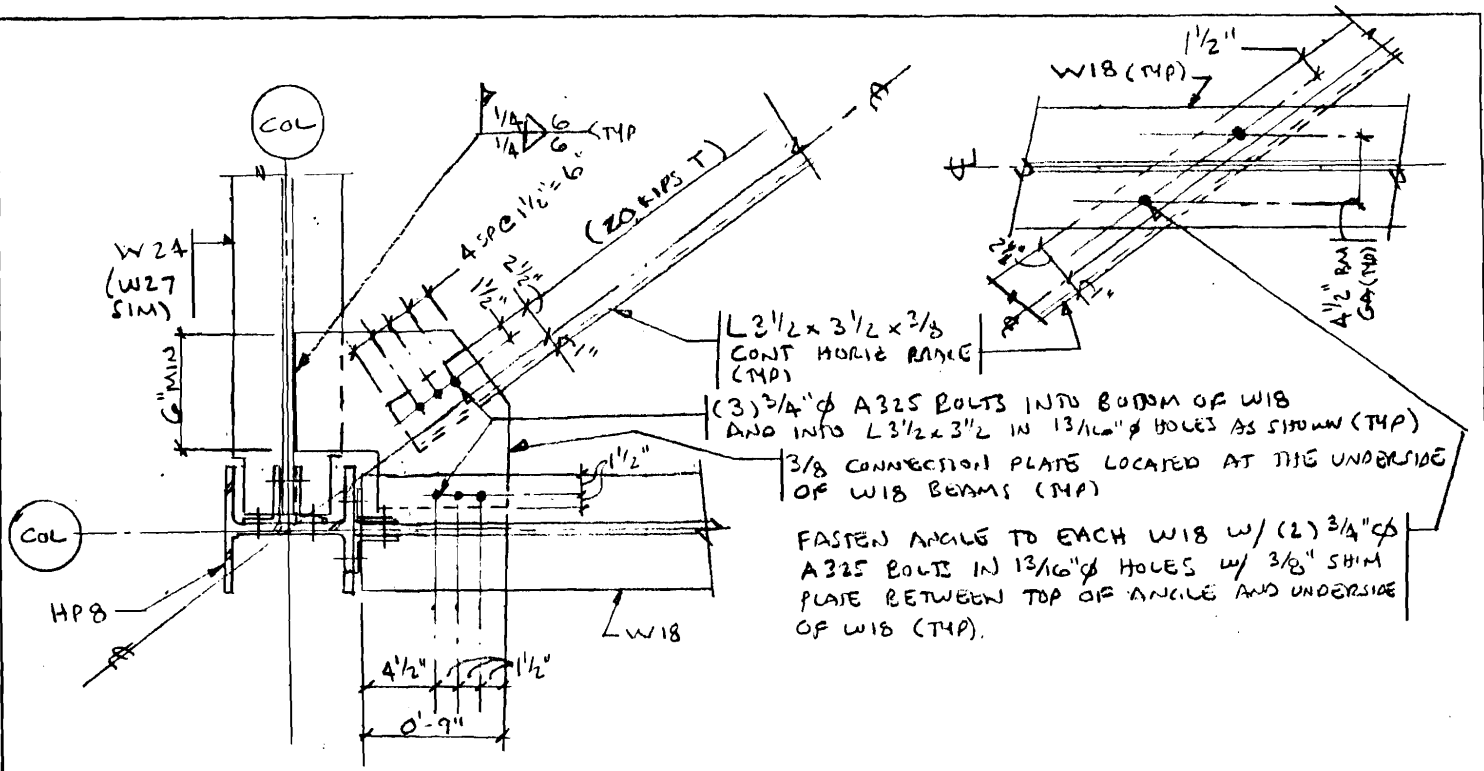 COL
1/4 6
1/4 6
TYP
4 SP@ 1 1/2" = 6"
(20 KIPS T)
W 24
(W27
SIM)
6" MIN
1 1/2"
2 1/2"
1"
1 1/2"
W18 (TYP)
2 1/4"
1"
4 1/2" BM
GA (TYP)
L 3 1/2 x 3 1/2 x 3/8
CONT HORIZ BRACE
(TYP)
(3) 3/4"φ A325 BOLTS INTO BOTTOM OF W18
AND INTO L 3 1/2 x 3 1/2 IN 13/16"φ HOLES AS SHOWN (TYP)
3/8 CONNECTION PLATE LOCATED AT THE UNDERSIDE
OF W18 BEAMS (TYP)
1 1/2"
COL
FASTEN ANGLE TO EACH W18 W/ (2) 3/4"φ
A325 BOLTS IN 13/16"φ HOLES W/ 3/8" SHIM
PLATE BETWEEN TOP OF ANGLE AND UNDERSIDE
OF W18 (TYP).
HP8
W18
4 1/2"
1 1/2"
0'-9"